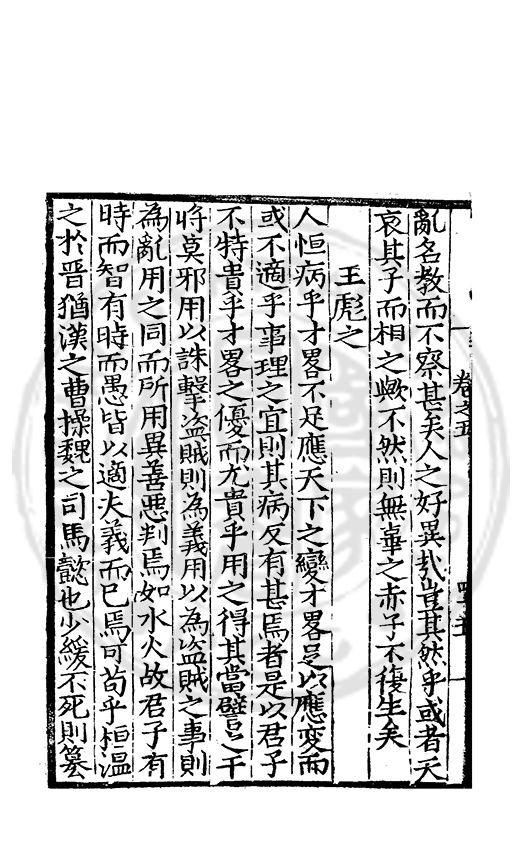 卷之五
四十五
亂名教而不察甚矣人之好異哉豈其然乎或者天
哀其子而相之歟不然則無辜之赤子不復生矣
王彪之
人恒病乎才畧不足應天下之變才畧足以應变而
或不適乎事理之宜則其病反有甚焉者是以君子
不特貴乎才畧之優而尤貴乎用之得其當譬之干
將莫邪用以誅擊盗賊則為義用以為盗賊之事則
為亂用之同而所用異善恶判焉如水火故君子有
時而智有時而愚皆以適夫義而已焉可苟乎桓温
之於晋猶漢之曹操魏之司馬懿也少緩不死則篡